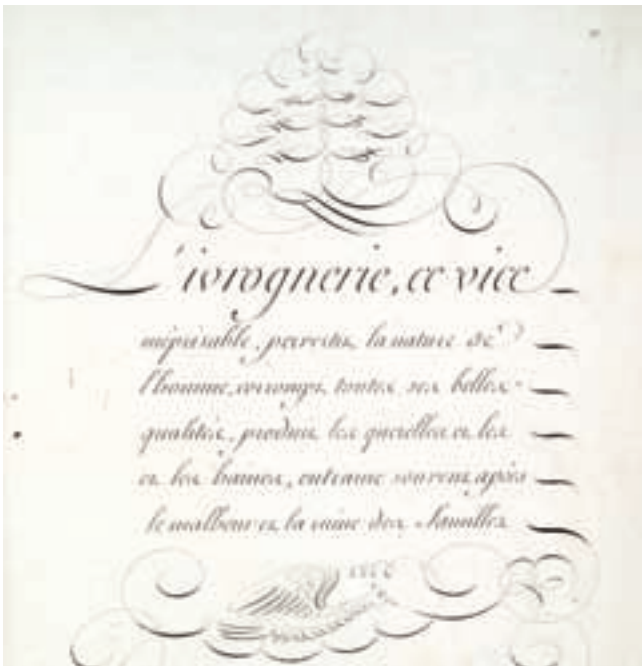 L'ivrognerie, ce vice
méprisable, pervertit la nature de
l'homme, corrompt toutes ses belles
qualités, produit les querelles et les
et les haines, entraine souvent après
le malheur et la ruine des familles